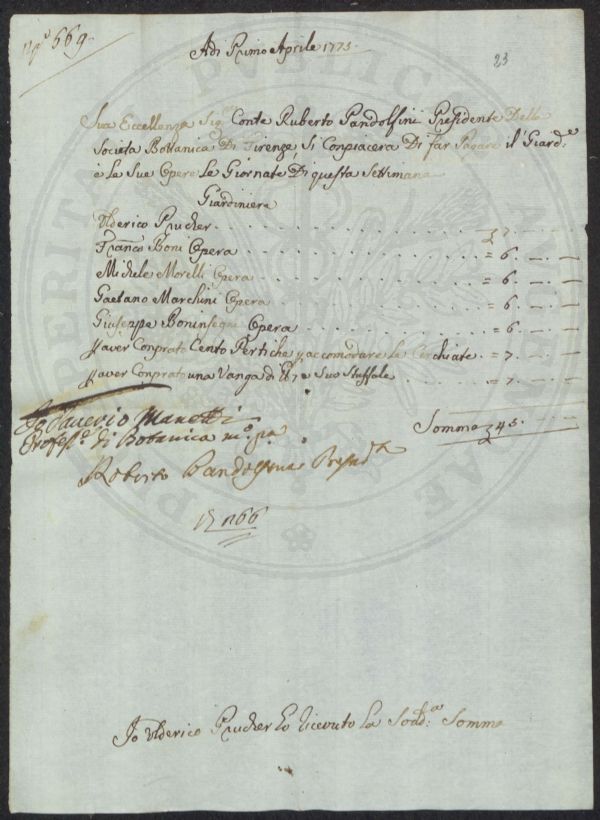 N.º 669.
Adi Primo Aprile 1775.
23
Sua Eccellenza Sig.re Conte Ruberto Pandolfini Presidente Della
Societa Bottanica Di Firenze, Si Conpiacera Di far Pagare il Giard.e
e le Sue Opere Le Giornate Di questa Settimana
Giardiniere
Ulderico Prucher 7
Fran.co Boni Opera = 6
Michele Morelli Opera = 6
Gaetano Marchini Opera = 6
Giusenpe Boninsegni Opera = 6
p aver Conprato Cento Pertiche p accomodare le Cerchiate = 7
p aver Conprato una Vanga di e Suo Stuffale = 7
Io Saverio Manetti
Profess.e di Botanica m.o pa
Somma 45
Roberto Pandolfini Presid.te
1766
Io Ulderico Prucher ho ricevuto la Sod.a Somma
PERITA PUBLICAE